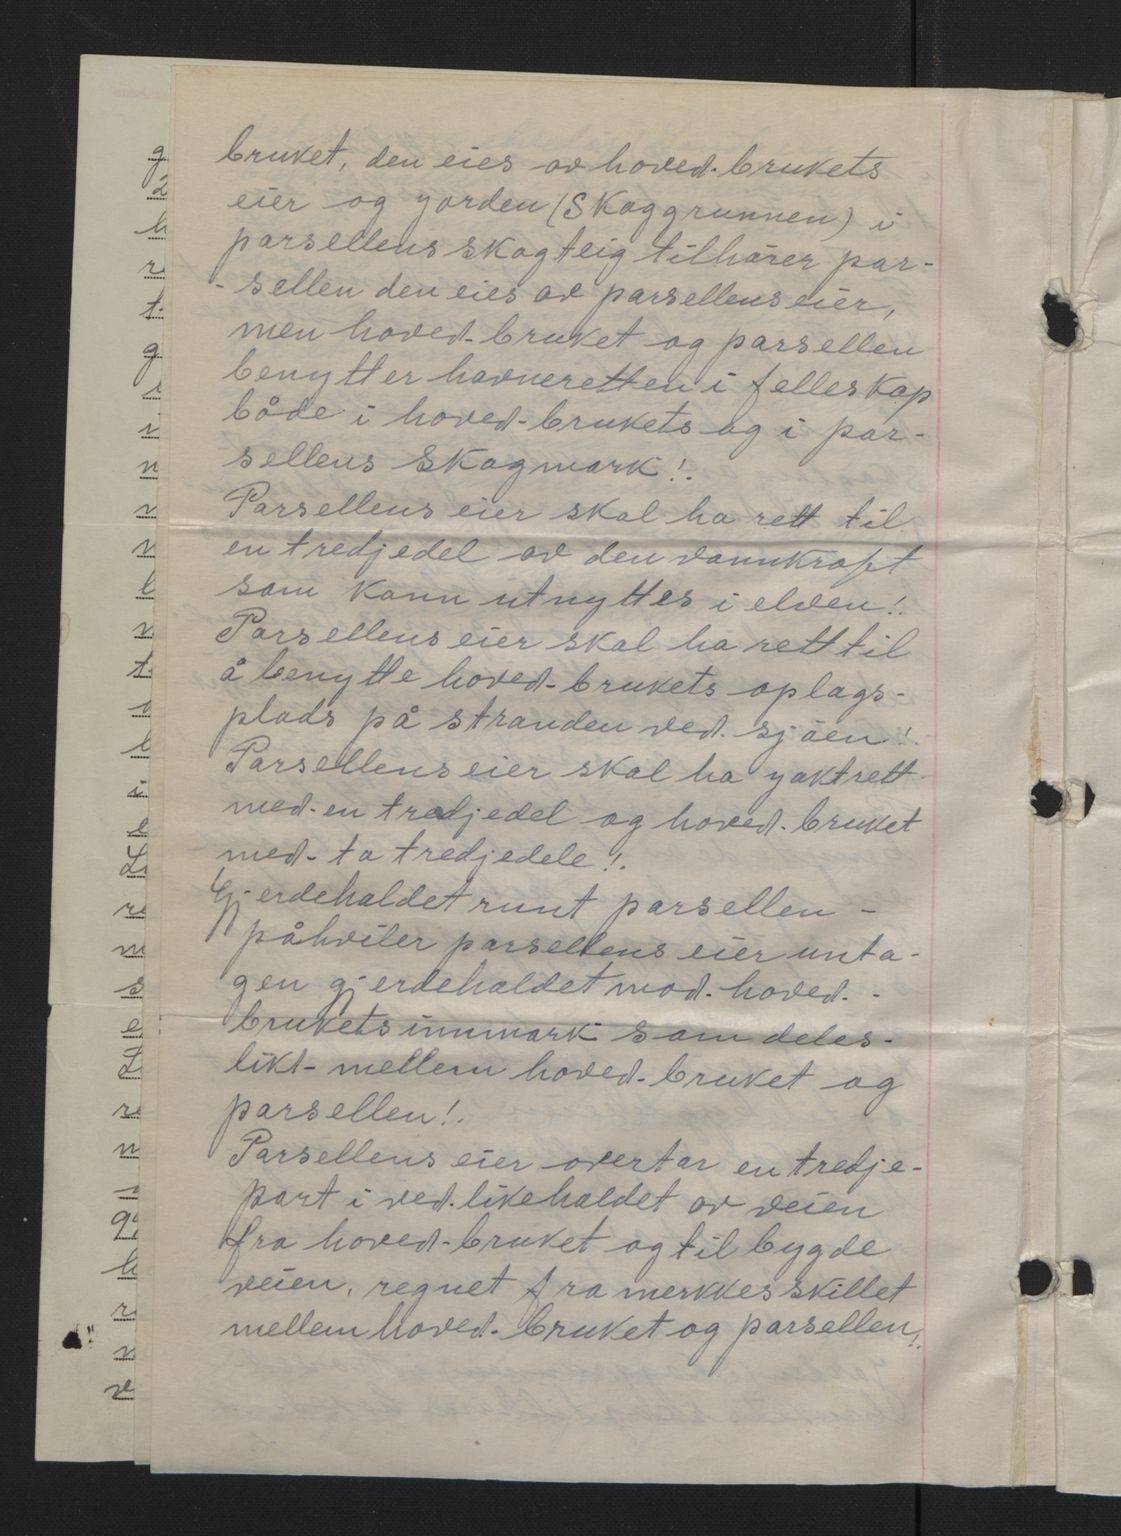 bruket, den eies av hoved-brukets
eier og yorden (Skoggrunnen) i
parsellens skogteig tilhører par-
- sellen den eies av parsellens eier,
men hoved-bruket og parsellen
benytter havneretten i felleskap
både i hoved-brukets og i par-
sellens skogmark!.
Parsellens eier skal ha rett til
en tredjedel av den vannkraft
som kann utnyttes i elven!.
Parsellens eier skal ha rett til
å benytte hoved-brukets oplags-
plads på stranden ved. sjøen!.
Parsellens eier skal ha yaktrett
med-en tredjedel og hoved-bruket
med-to tredjedele!.
Gjerdehaldet runt parsellen -
påhviler parsellens eier unta-
gen gjerdehaldet mod-hoved-
brukets innmark som deles-
likt-mellem hoved-bruket og
parsellen!.
Parsellens eier overtar en tredje-
part i ved-likehaldet av veien
fra hoved-bruket og til bygde
veien, regnet fra merkkesskillet
mellem hoved-bruket og parsellen!.